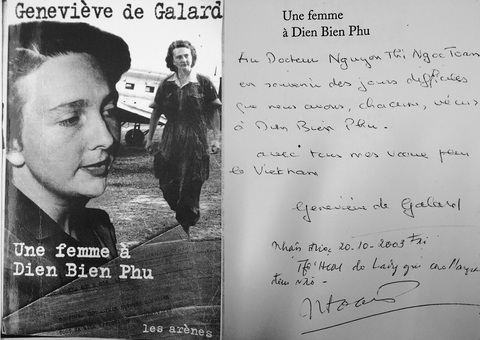 Geneviève de Galard
Une femme à
Dien Bien Phu
les arènes
Une femme
à Dien Bien Phu
Au Docteur Nguyen Thi Ngoc Toan
en souvenir des jours difficiles
que nous avons, chacune, vécus
à Dien Bien Phu.
avec tous mes vœux pour
le Vietnam
Geneviève de Galard
Nhận được 20.10-2003